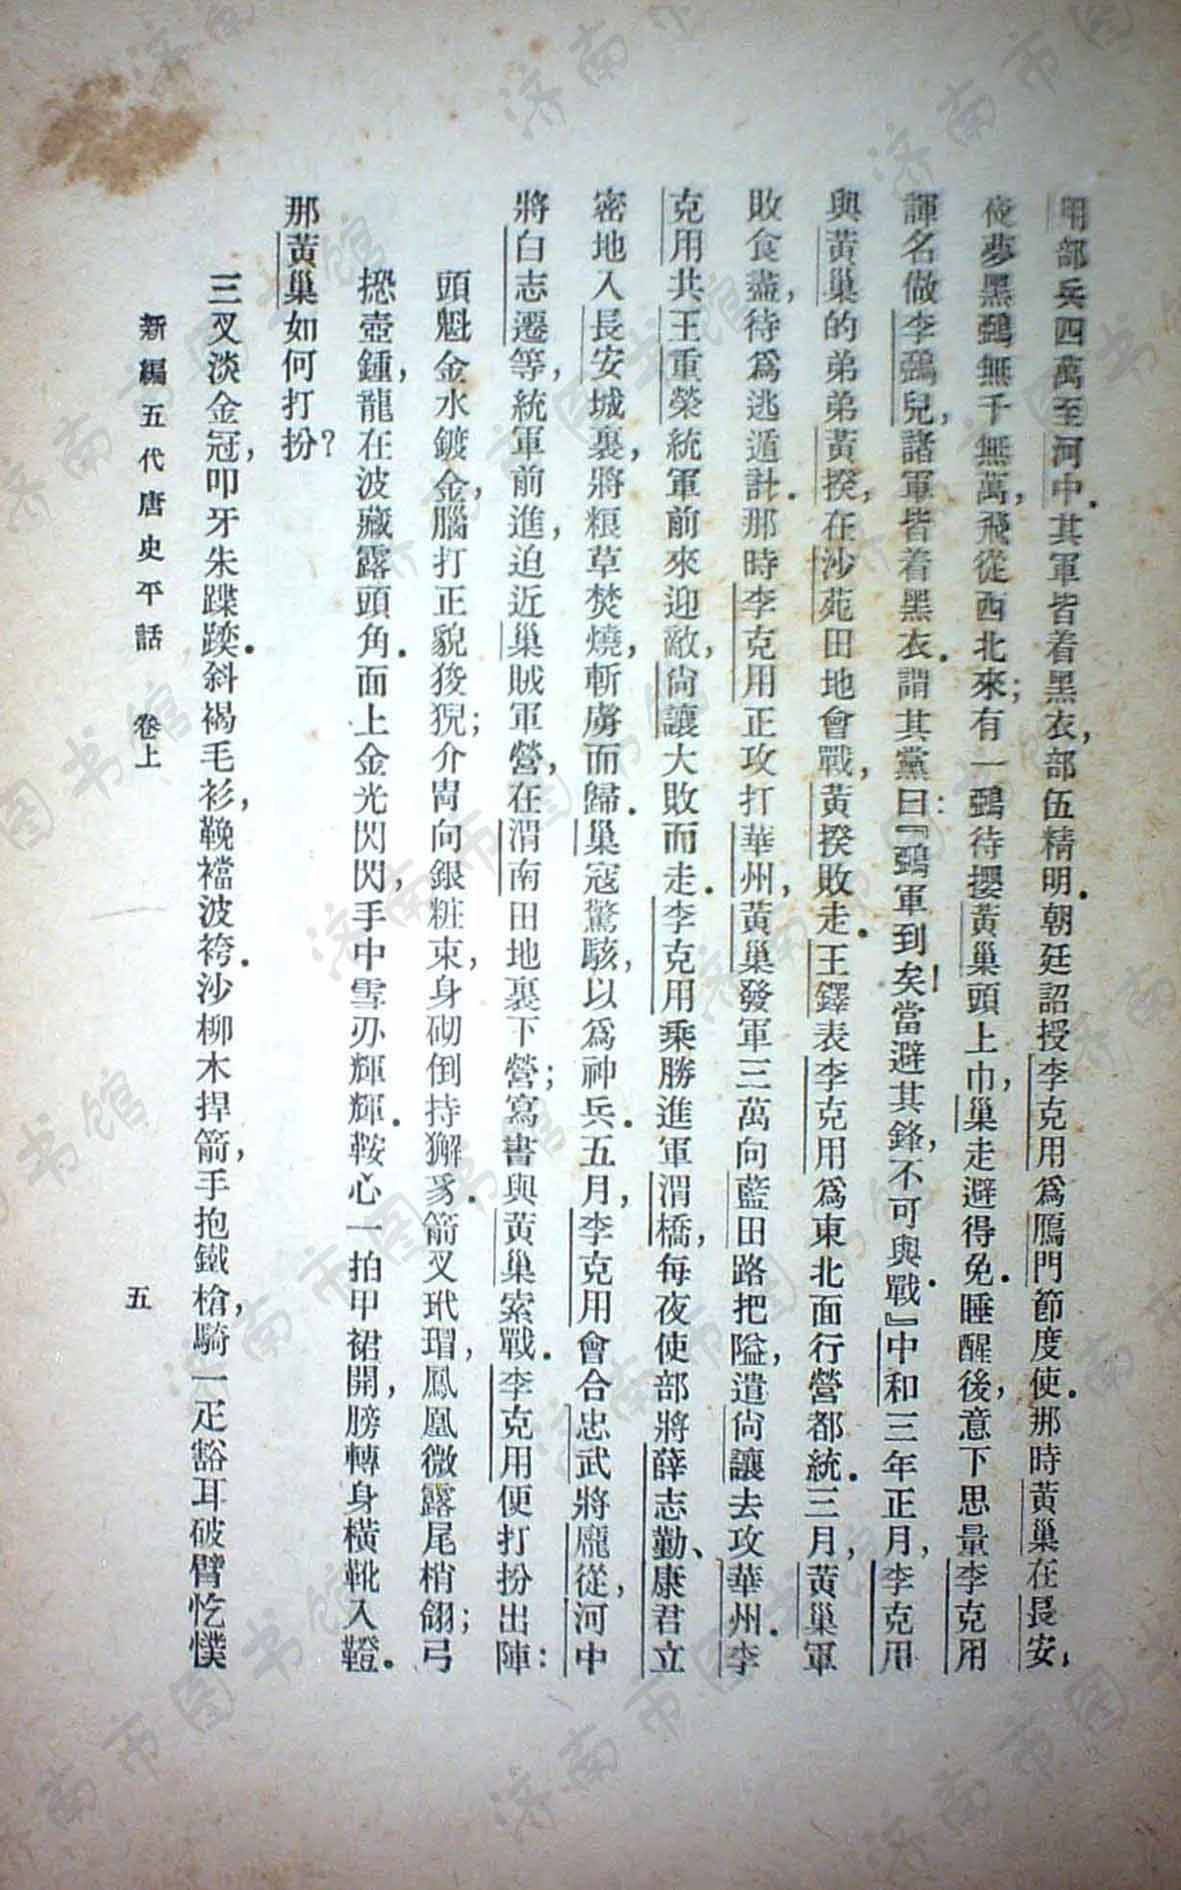 用部兵四萬至河中.其軍皆着黑衣,部伍精明.朝廷詔授李克用爲鴈門節度使.那時黃巢在長安,
夜夢黑鵶無千無萬,飛從西北來;有一鵶待攖黃巢頭上巾,巢走避得免.睡醒後,意下思量李克用
諢名做李鵶兒,諸軍皆着黑衣.謂其黨曰:『鵶軍到矣!當避其鋒,不可與戰.』中和三年正月,李克用
與黃巢的弟弟黃揆,在沙苑田地會戰,黃揆敗走.王鐸表李克用爲東北面行營都統.三月,黃巢軍
敗食盡,待爲逃遁計.那時李克用正攻打華州,黃巢發軍三萬向藍田路把隘,遣尙讓去攻華州.李
克用共王重榮統軍前來迎敵,尙讓大敗而走.李克用乘勝進軍渭橋,每夜使部將薛志勤、康君立
密地入長安城裏,將粮草焚燒,斬虜而歸.巢寇驚駭,以爲神兵.五月,李克用會合忠武將龐從,河中
將白志遷等,統軍前進,迫近巢賊軍營,在渭南田地裏下營;寫書與黃巢索戰.李克用便打扮出陣:
頭魁金水鍍金,腦打正貌狻猊;介冑向銀粧束,身砌倒持獬豸.箭叉玳瑁,鳳凰微露尾梢翎;弓
摐壺鍾,龍在波藏露頭角.面上金光閃閃,手中雪刃輝輝.鞍心一拍甲裙開,膀轉身橫靴入鞳.
那黃巢如何打扮?
三叉淡金冠,叩牙朱蹀踥.斜褐毛衫,鞔襠波袴.沙柳木捍箭,手抱鐵槍,騎一疋豁耳破臂忔憡
新編五代唐史平話 卷上
五
济南市图书馆